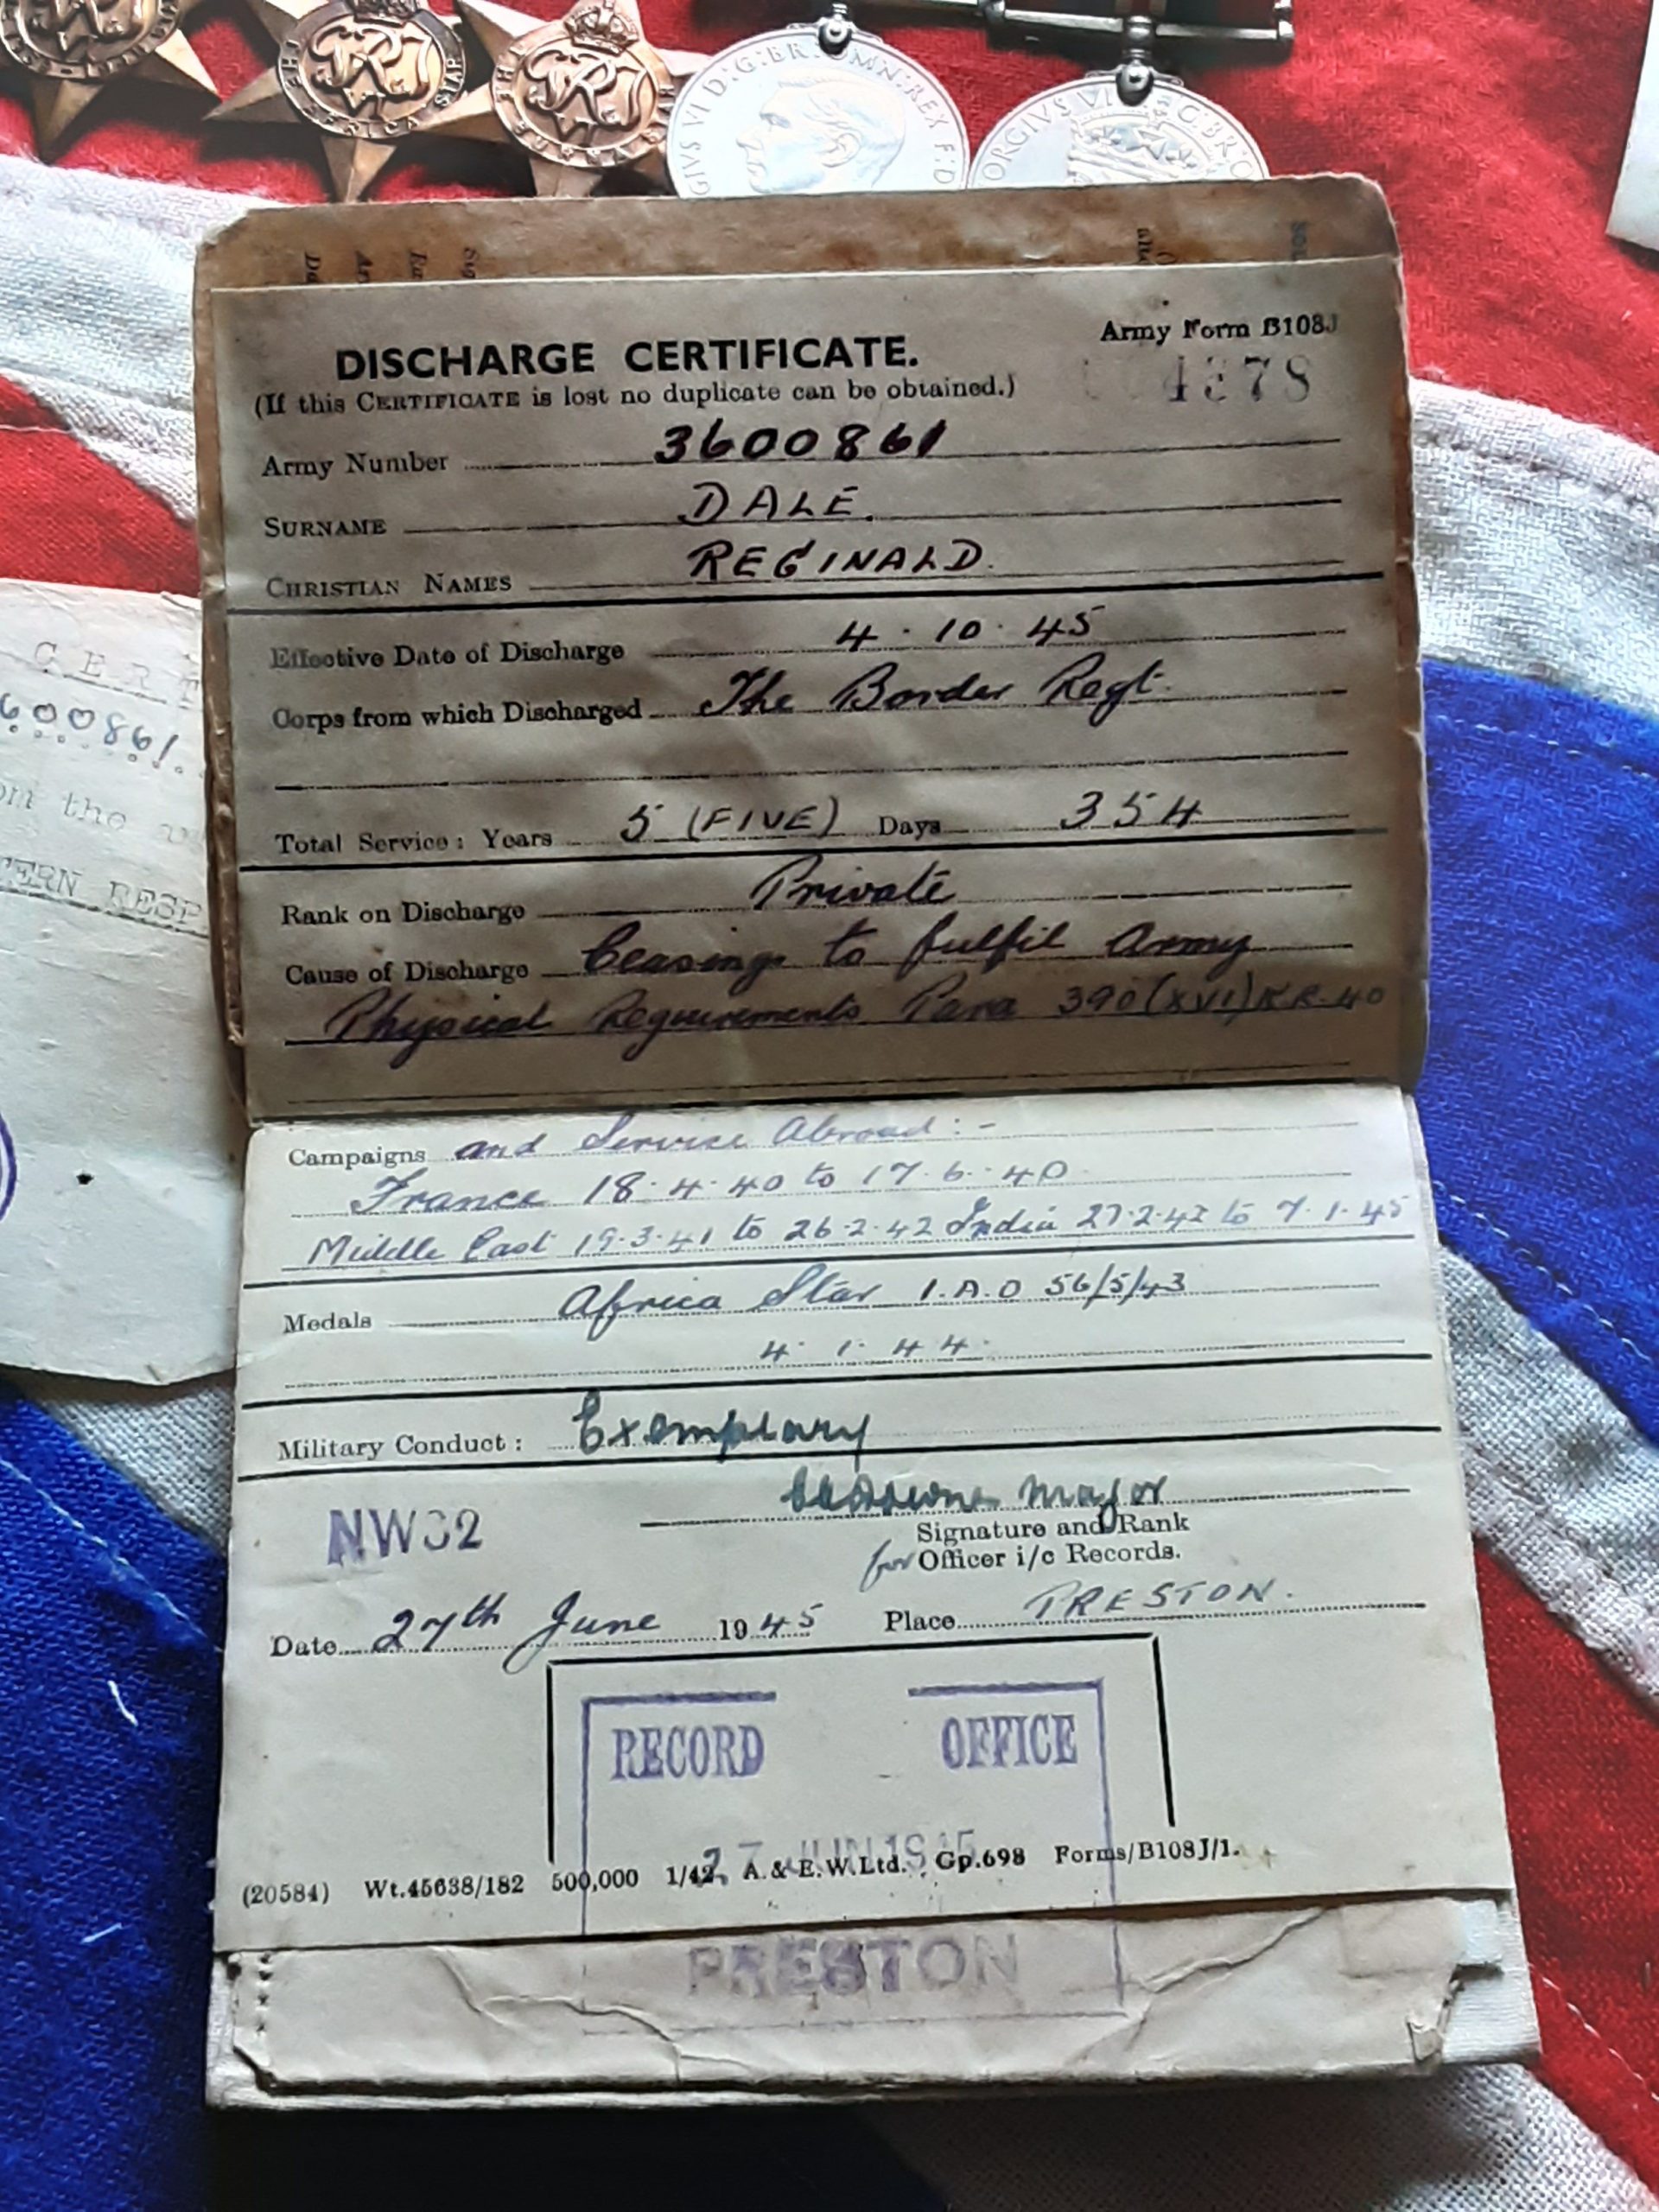 THE AFRICA STAR
THE BURMA STAR
GIVS VI D:G:BR:OMN:REX F:D
ORGIVS VI G:BR:O
DISCHARGE CERTIFICATE.
Army Form B108J
(If this CERTIFICATE is lost no duplicate can be obtained.)
4378
Army Number 3600861
SURNAME DALE.
CHRISTIAN NAMES REGINALD.
Effective Date of Discharge 4.10.45
Corps from which Discharged The Border Regt.
Total Service: Years 5 (FIVE) Days 354
Rank on Discharge Private
Cause of Discharge Ceasing to fulfil Army
Physical Requirements Para 390(XVI) KR.40
Campaigns and Service Abroad:-
France 18.4.40 to 17.6.40
Middle East 19.3.41 to 26.2.42 India 27.2.42 to 7.1.45
Medals Africa Star I.A.O 56/5/43
4.1.44.
Military Conduct: Exemplary
Major
Signature and Rank
for Officer i/c Records.
NW32
Date 27th June 1945 Place PRESTON.
RECORD OFFICE
27 JUN 1945
(20584) Wt.45638/182 500,000 1/42 A.& E.W.Ltd. Gp.698 Forms/B108J/1.
PRESTON
CERT
600861.
on the
TERN RESP